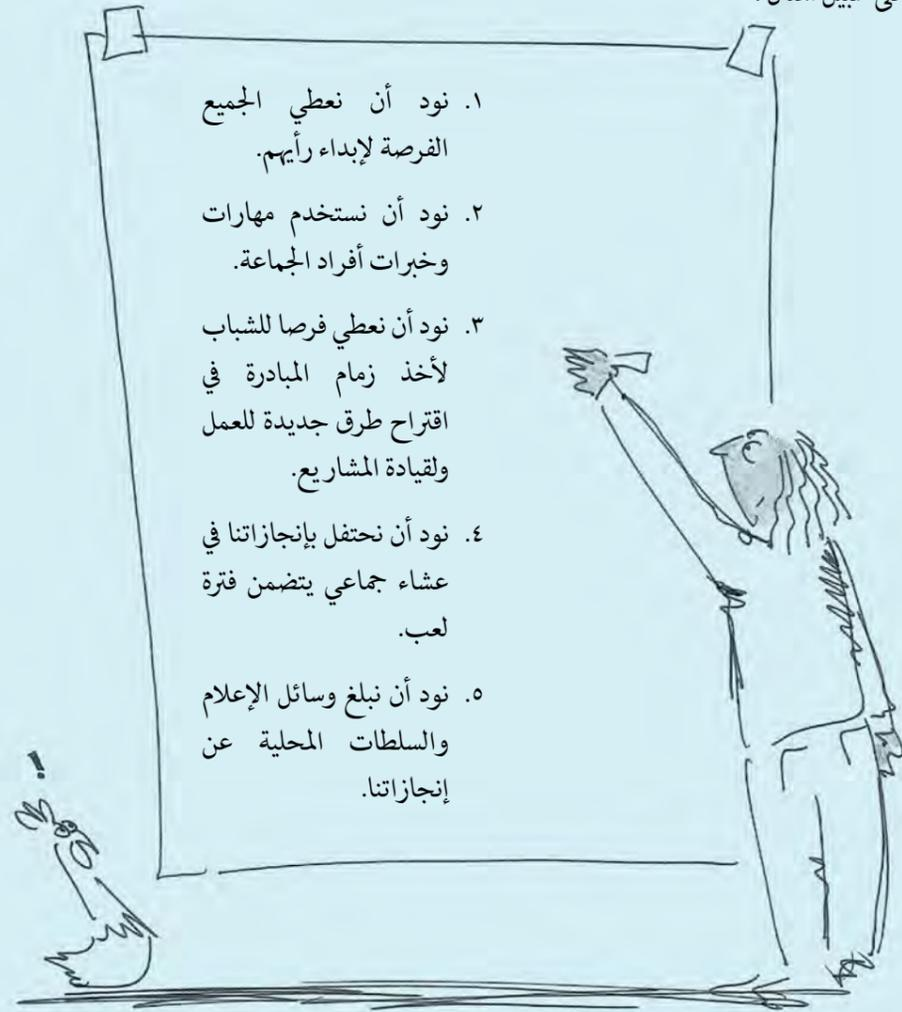 ١. نود أن نعطي الجميع
الفرصة لإبداء رأيهم.
٢. نود أن نستخدم مهارات
وخبرات أفراد الجماعة.
٣. نود أن نعطي فرصا للشباب
لأخذ زمام المبادرة في
اقتراح طرق جديدة للعمل
ولقيادة المشاريع.
٤. نود أن نحتفل بإنجازاتنا في
عشاء جماعي يتضمن فترة
لعب.
٥. نود أن نبلغ وسائل الإعلام
والسلطات المحلية عن
إنجازاتنا.
!